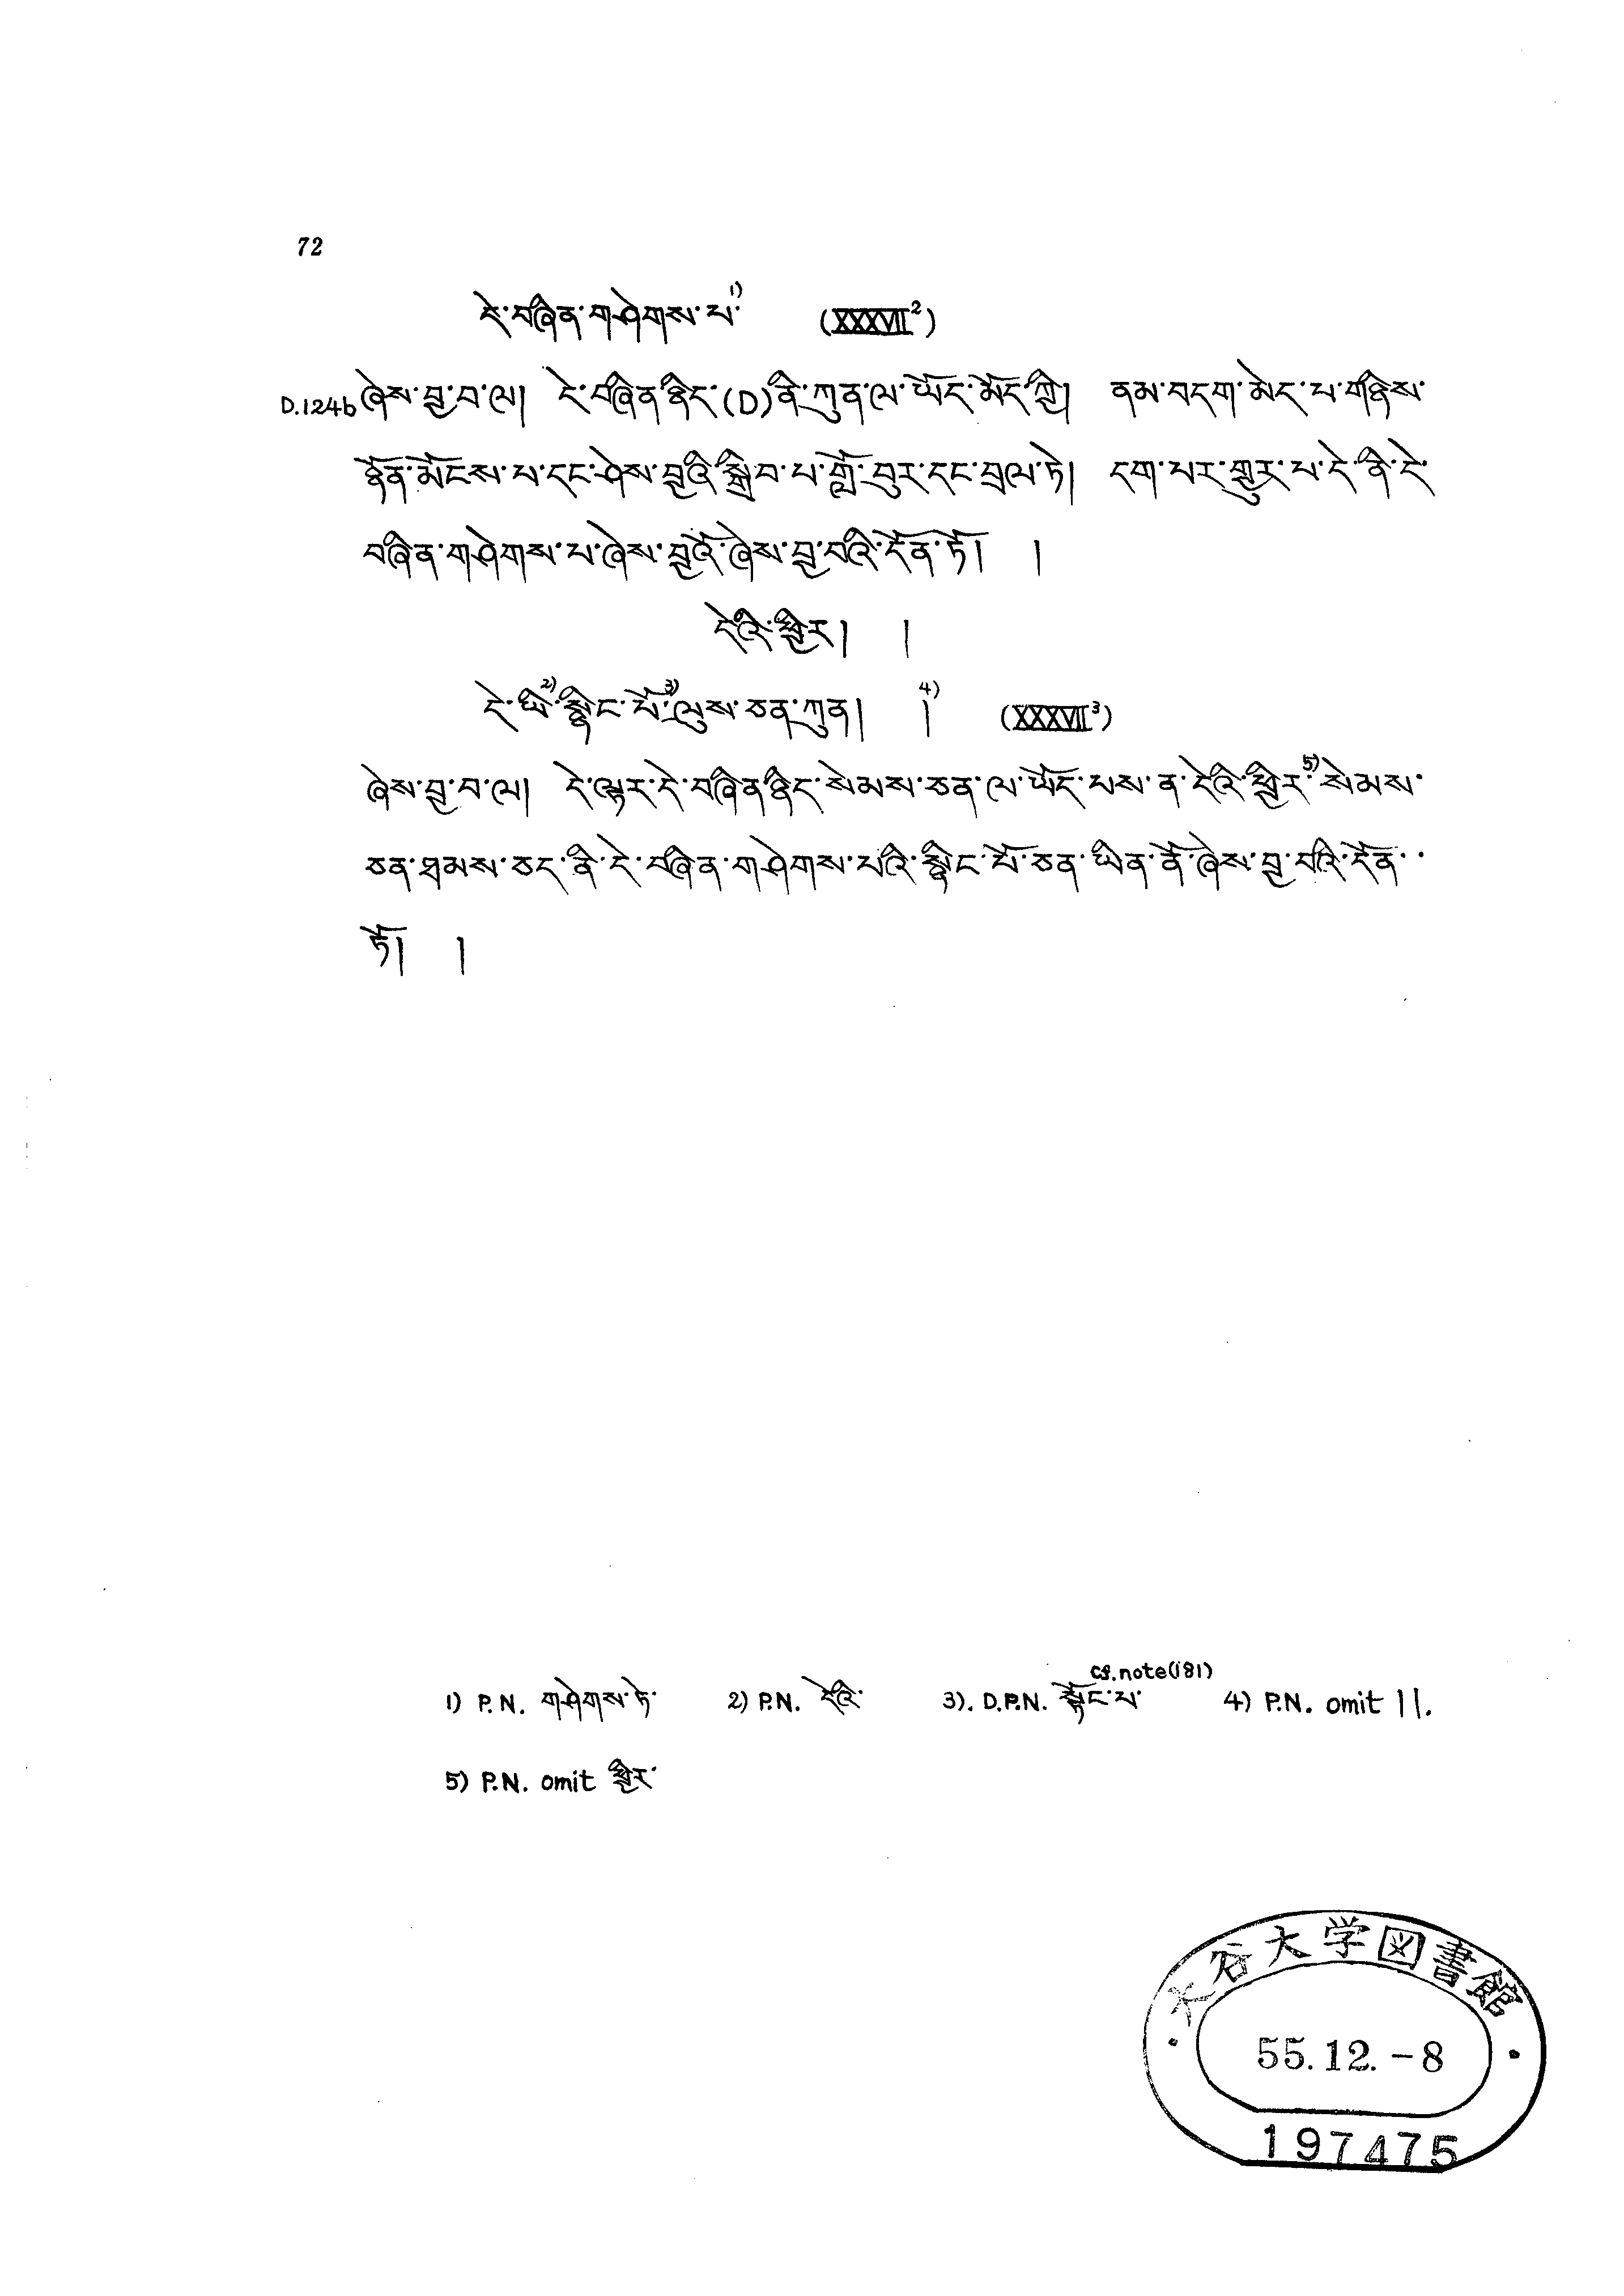 72
དེ་བཞིན་གཤེགས་པ་1) (XXXVII2)
D.124b ཞེས་བྱ་བ་ལ། དེ་བཞིན་ཉིད་(D)ནི་ཀུན་ལ་ཡོད་མོད་ཀྱི། ནམ་བདག་མེད་པ་གཉིས་
ཉོན་མོངས་པ་དང་ཤེས་བྱའི་སྒྲིབ་པ་གློ་བུར་དང་བྲལ་ཏེ། དག་པར་གྱུར་པ་དེ་ནི་དེ་
བཞིན་གཤེགས་པ་ཞེས་བྱའོ་ཞེས་བྱ་བའི་དོན་ཏོ། །
དེའི་ཕྱིར། །
དེ་ཡི་2)སྙིང་པོ་3)ལུས་ཅན་ཀུན། །4) (XXXVII3)
ཞེས་བྱ་བ་ལ། དེ་ལྟར་དེ་བཞིན་ཉིད་སེམས་ཅན་ལ་ཡོད་པས་ན་དེའི་ཕྱིར་5)སེམས་
ཅན་ཐམས་ཅད་ནི་དེ་བཞིན་གཤེགས་པའི་སྙིང་པོ་ཅན་ཡིན་ནོ་ཞེས་བྱ་བའི་དོན་་
ཏོ། །
cf.note(181)
1) P.N. གཤེགས་ཏེ་ 2) P.N. དེའི་ 3). D.P.N. སྟོང་པ་ 4) P.N. omit ||.
5) P.N. omit ཕྱིར་
大谷大学図書館
55.12.-8
197475